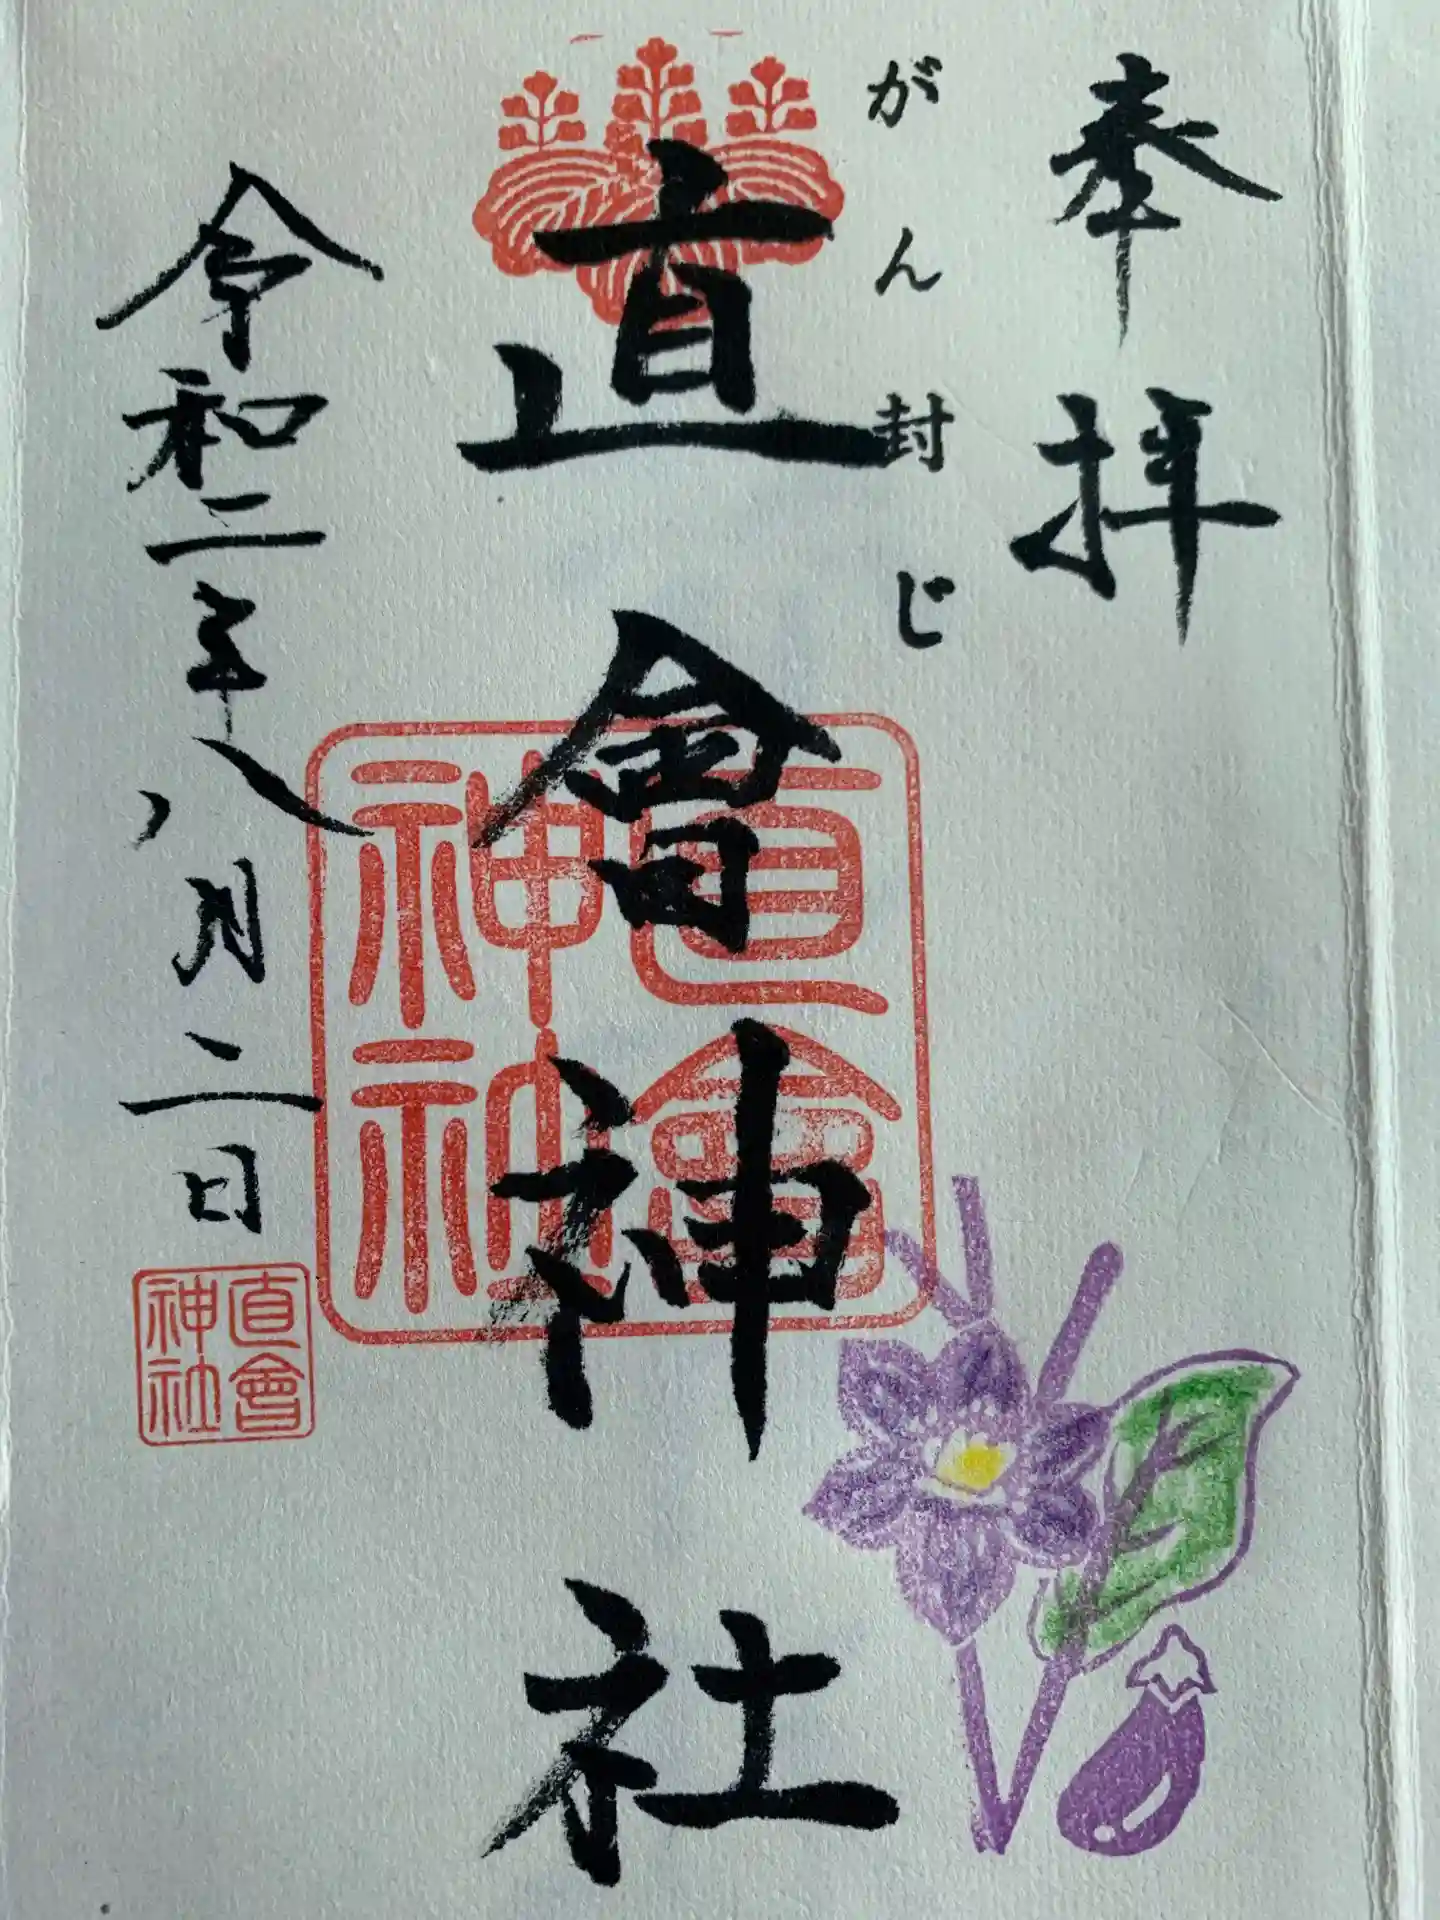 奉拝
がん封じ
直會神社
直會神社
令和二年八月二日
直會神社